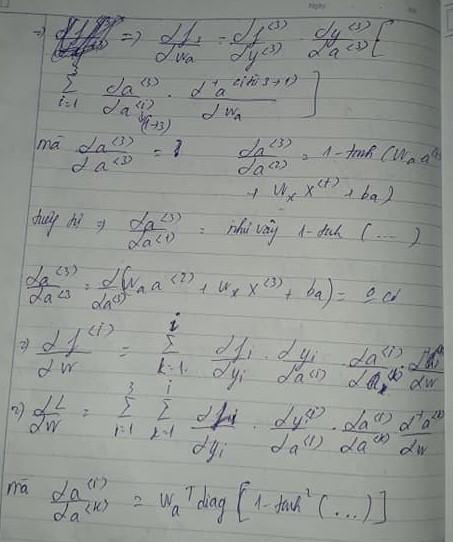 => => dJ₃/dWa = dJ^(3)/dy^(3) · dy^(3)/da^(3) [
∑_{i=1}^{3} da^(3)/da^(i) · d⁺a^(i)/dWa ]
(1→3)
mà da^(3)/da^(3) = 1 da^(3)/da^(2) = 1 - tanh (Wa a
+ Wx X + ba)
tương tự => da^(3)/da^(1) = như vậy 1 - tanh (...)
da^(3)/da^3 = d/da^(3) (Wa a^(2) + Wx X^(3) + ba) =
=> dJ^(i)/dW = ∑_{k=1}^{i} dJi/dyi · dyi/da^(i) · da^(i)/da^(k) · /dW
=> dL/dW = ∑_{i=1}^{3} ∑_{k=1}^{i} dJi/dyi · dyi/da^(i) · da^(i)/da^(k) · d⁺a^(k)/dW
mà da^(i)/da^(k) = Wa^T diag [1 - tanh² (...)]